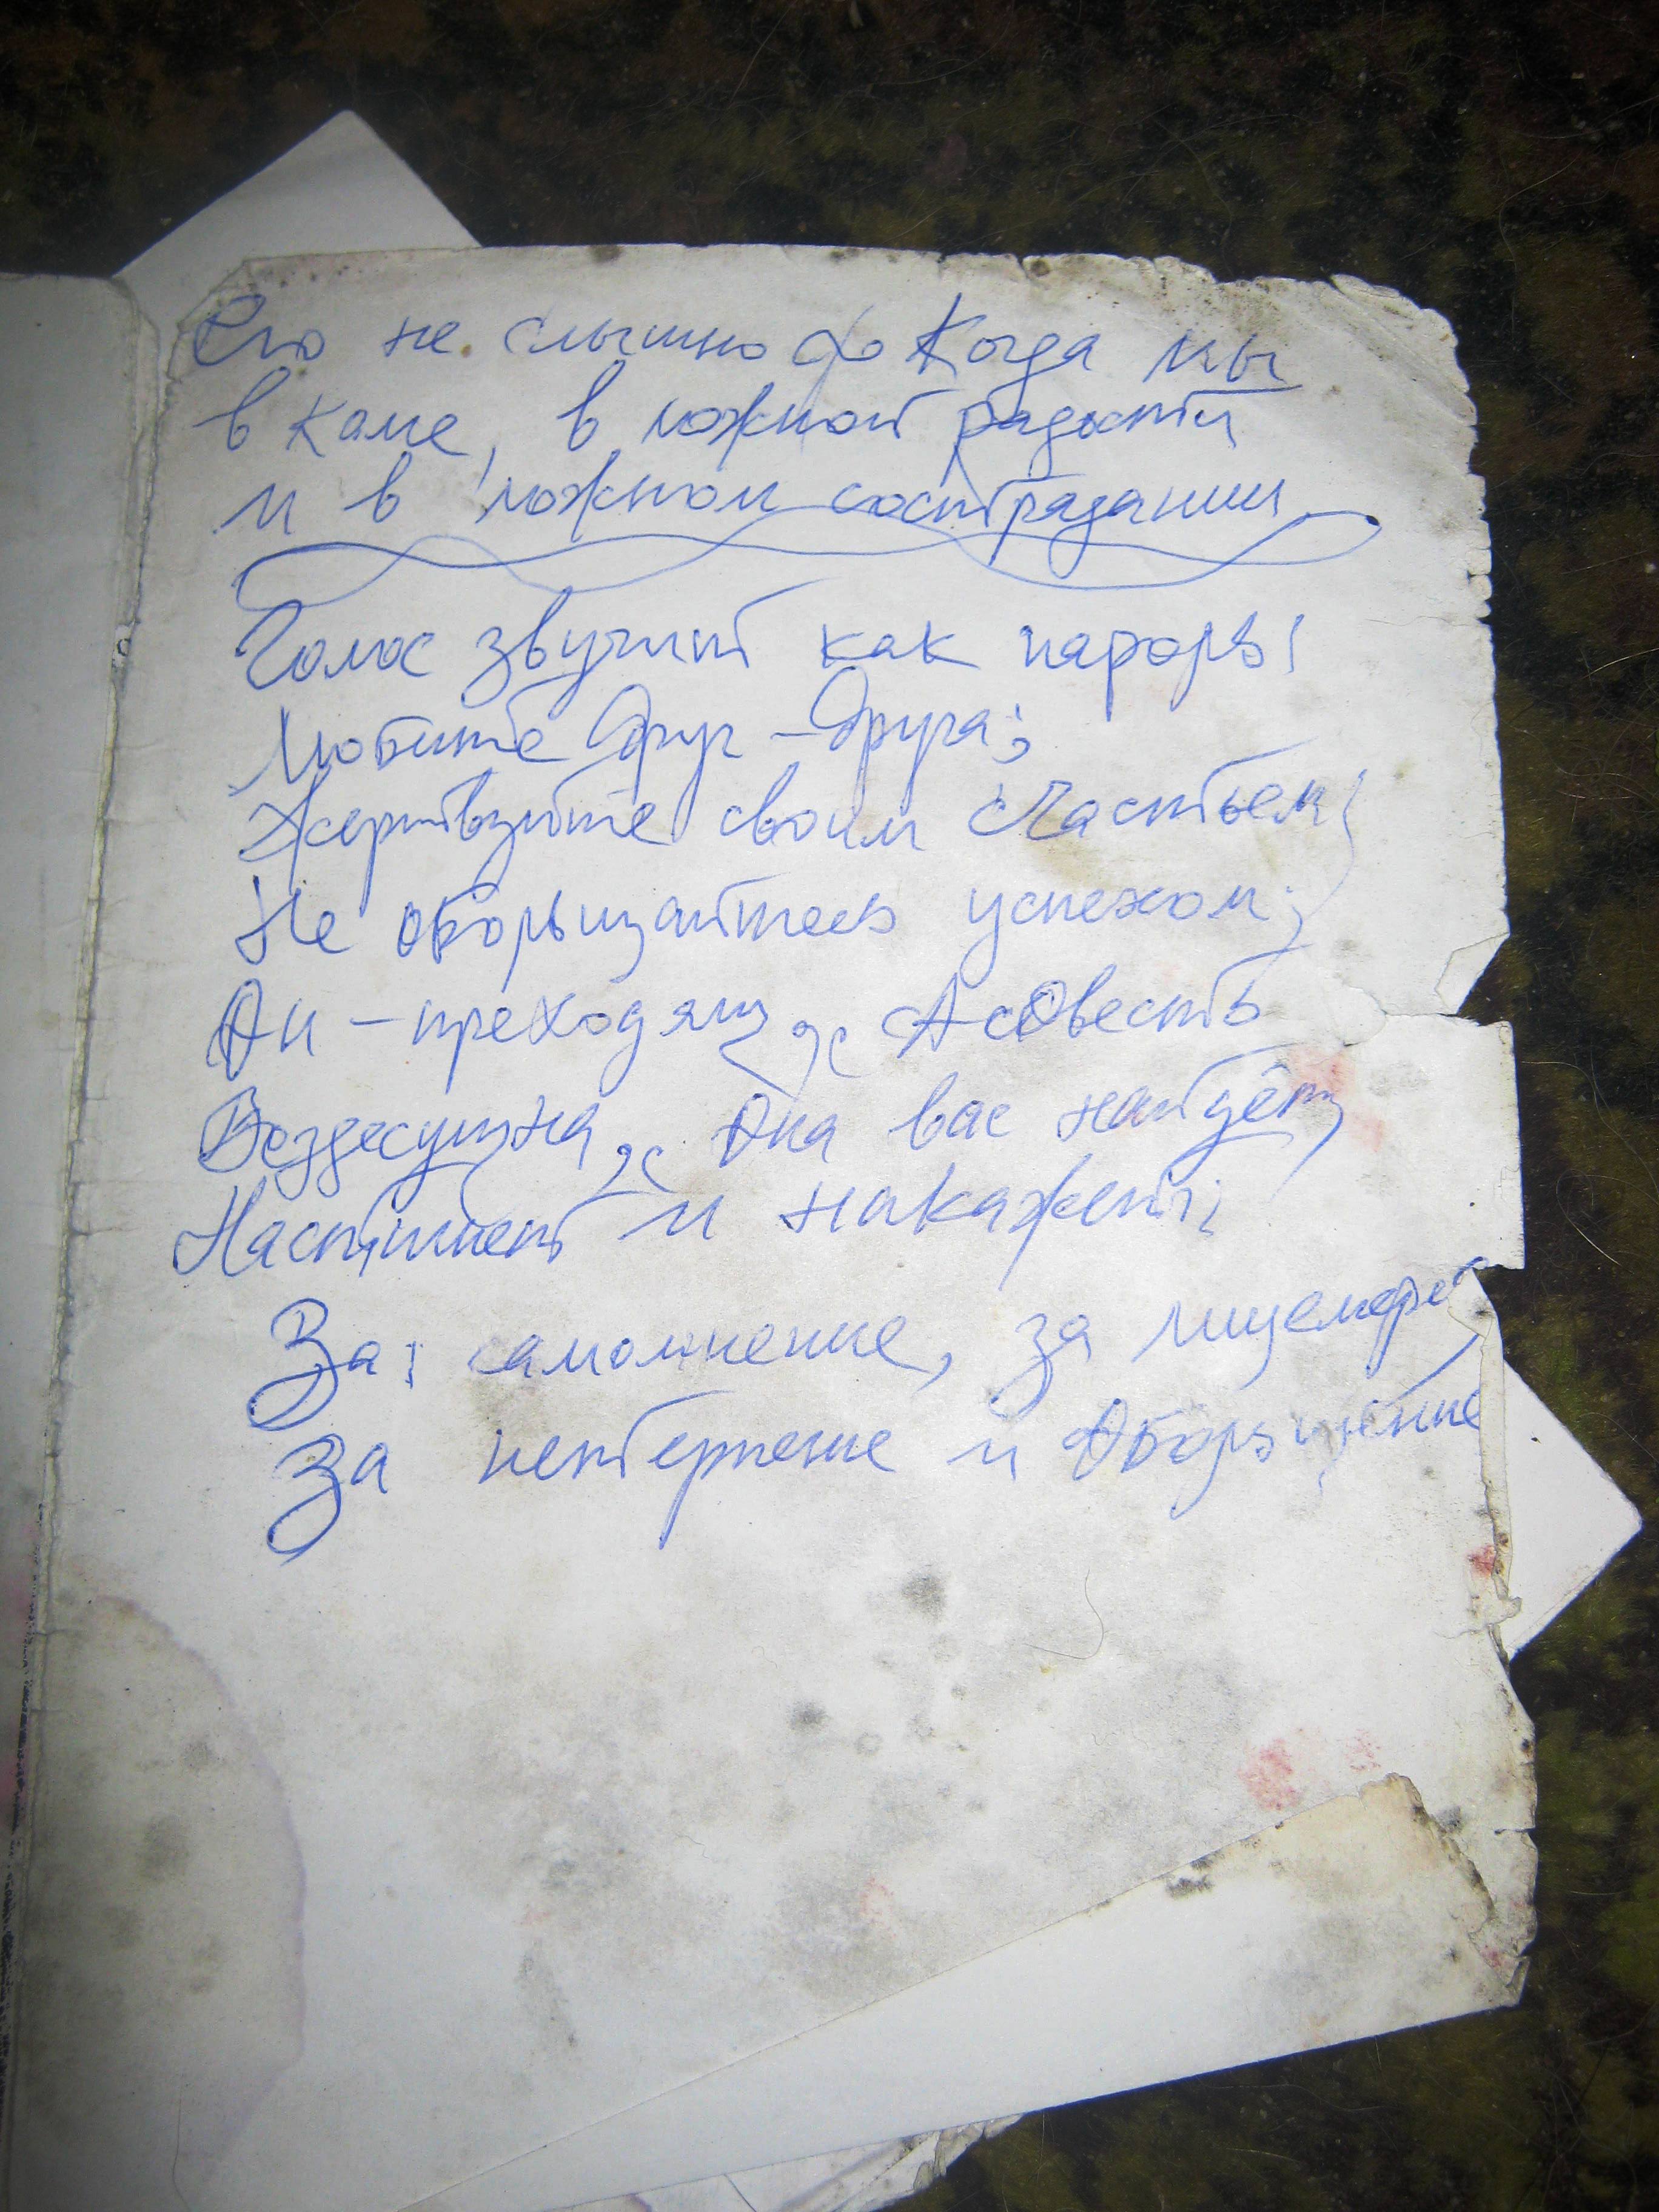 Его не слышно Когда мы
в каме, в ложной радости
и в ложном сострадании
Голос звучит как пароль:
Любите друг-друга;
Жертвуйте своим счастьем;
Не обольщайтесь успехом;
Он - преходящ А совесть
Вездесущна, Она вас найдёт,
Настигнет и накажет:
За: самомнение, за лицемерие
За нетерпение и Обольщение